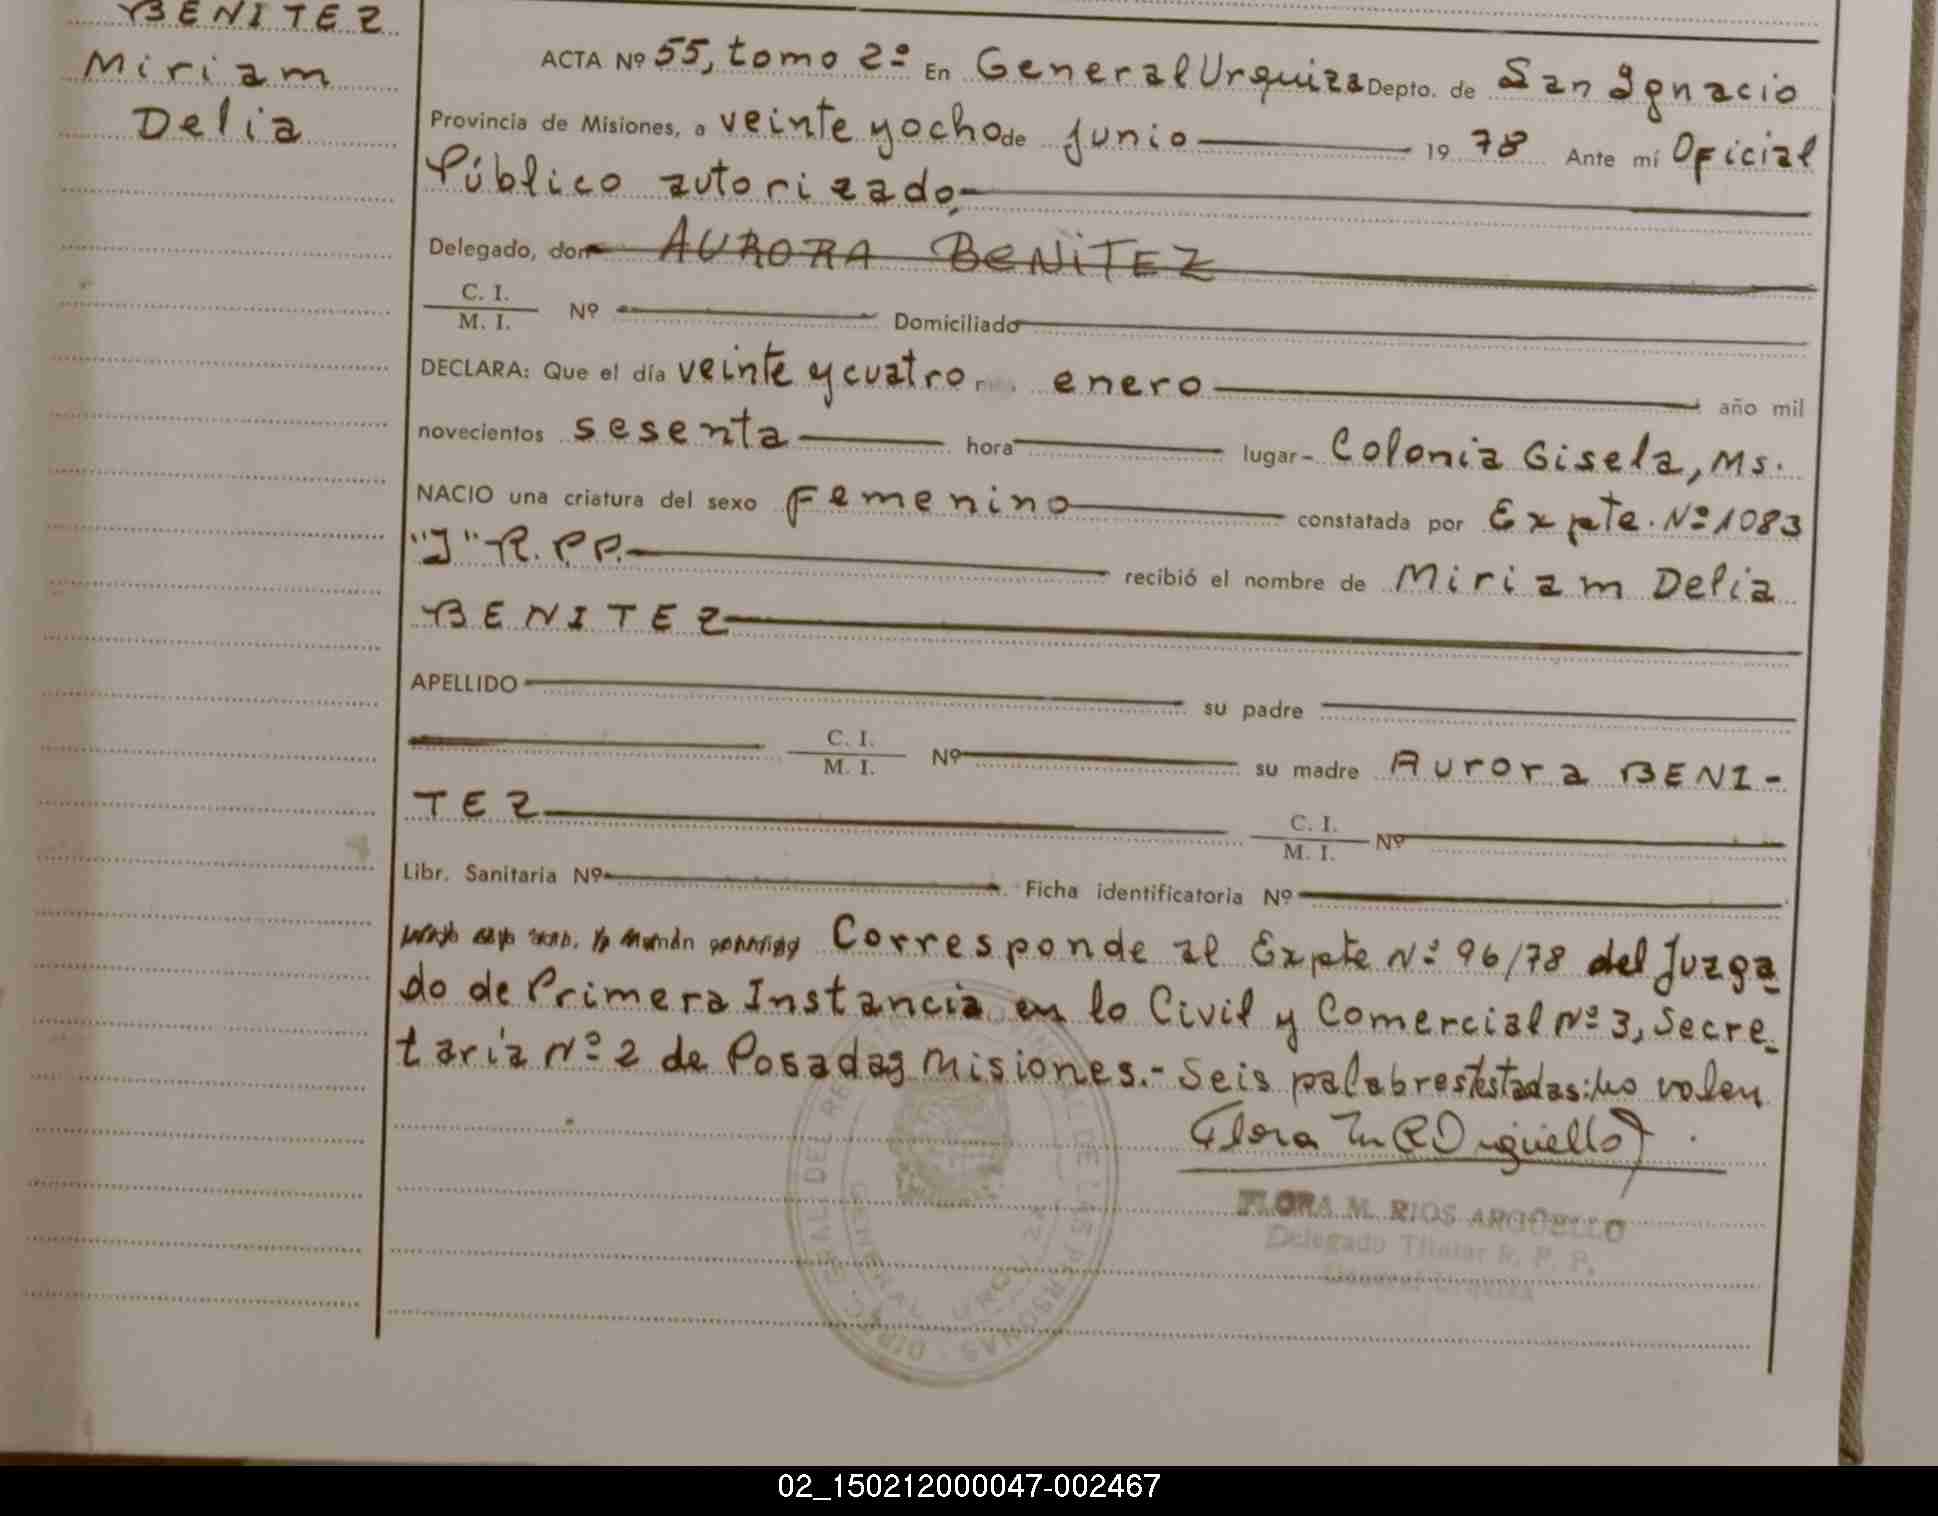 BENITEZ
Miriam
Delia
ACTA Nº 55, tomo 2º En General Urquiza Depto. de San Ignacio
Provincia de Misiones, a veinte y ocho de junio 19 78 Ante mí Oficial
Público autorizado,
Delegado, don AURORA BENITEZ
C. I.
M. I. Nº Domiciliado
DECLARA: Que el día veinte y cuatro enero año mil
novecientos sesenta hora lugar- Colonia Gisela, Ms.
NACIO una criatura del sexo Femenino constatada por Expte. Nº 1083
"J" R.P.P. recibió el nombre de Miriam Delia
BENITEZ
APELLIDO su padre
C. I.
M. I. Nº su madre Aurora BENI-
TEZ C. I.
M. I. Nº
Libr. Sanitaria Nº Ficha identificatoria Nº
Corresponde al Expte Nº 96/78 del Juzga
do de Primera Instancia en lo Civil y Comercial Nº 3, Secre-
taria Nº 2 de Posadas Misiones.- Seis palabras testadas: No valen
FLORA M. RIOS ARGÜELLO
Delegado Titular R. P. P.
General Urquiza
02_150212000047-002467